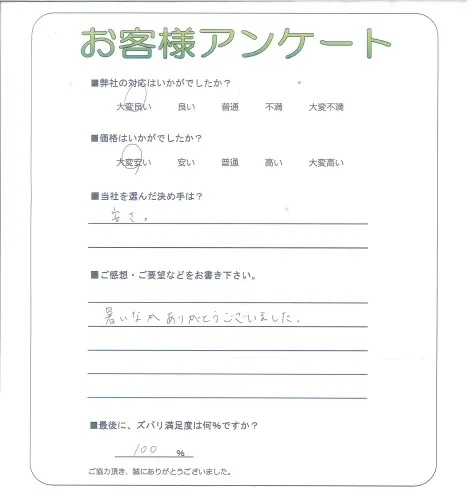 お客様アンケート
■弊社の対応はいかがでしたか？
大変良い 良い 普通 不満 大変不満
■価格はいかがでしたか？
大変安い 安い 普通 高い 大変高い
■当社を選んだ決め手は？
安さ。
■ご感想・ご要望などをお書き下さい。
暑いなか ありがとうございました。
■最後に、ズバリ満足度は何%ですか？
100 %
ご協力頂き、誠にありがとうございました。